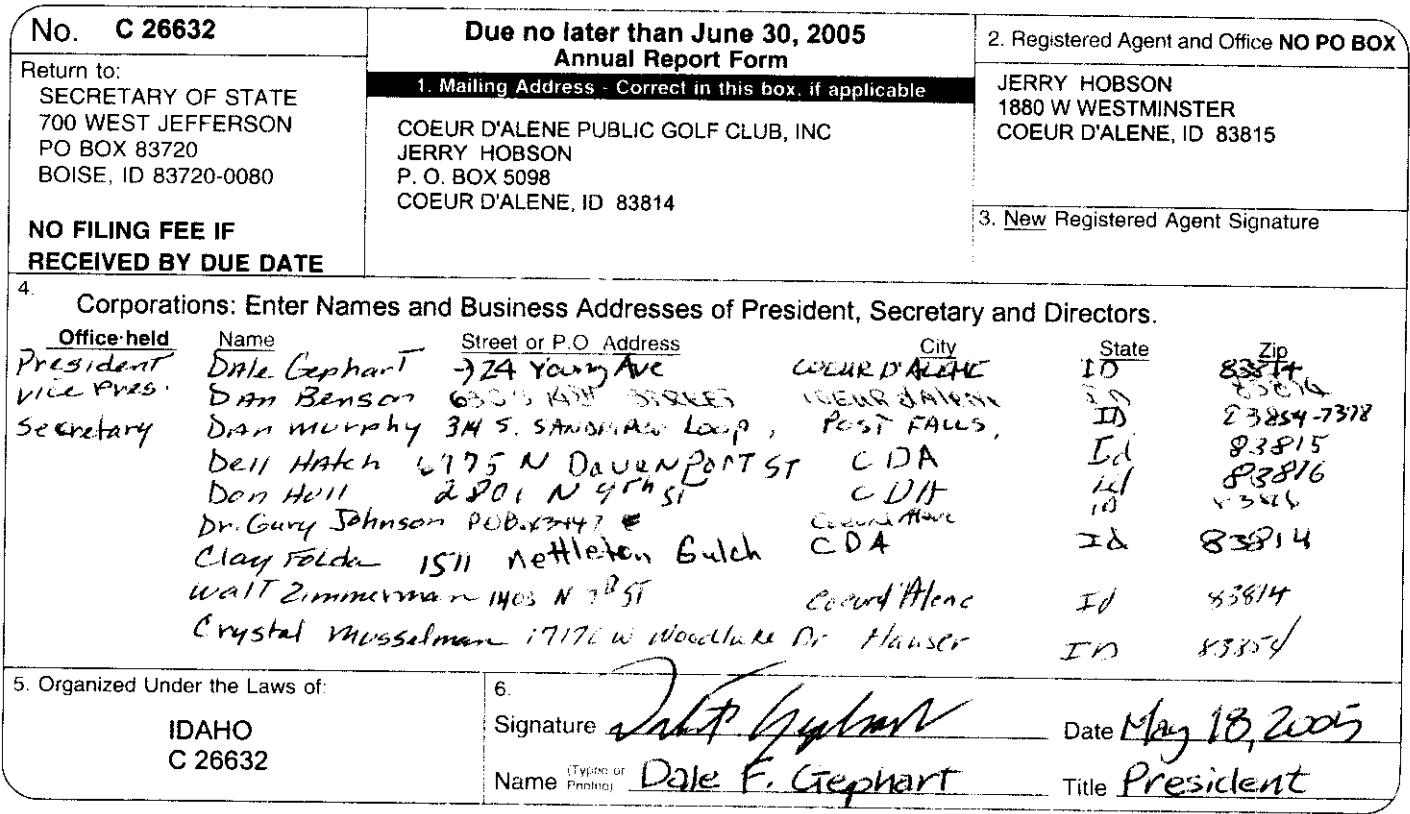 No. C 26632
Return to:
SECRETARY OF STATE
700 WEST JEFFERSON
PO BOX 83720
BOISE, ID 83720-0080
NO FILING FEE IF
RECEIVED BY DUE DATE
Due no later than June 30, 2005
Annual Report Form
1. Mailing Address - Correct in this box, if applicable
COEUR D'ALENE PUBLIC GOLF CLUB, INC
JERRY HOBSON
P. O. BOX 5098
COEUR D'ALENE, ID 83814
2. Registered Agent and Office NO PO BOX
JERRY HOBSON
1880 W WESTMINSTER
COEUR D'ALENE, ID 83815
3. New Registered Agent Signature
4.
Corporations: Enter Names and Business Addresses of President, Secretary and Directors.
Office held Name Street or P.O. Address City State Zip
President Dale Gephart 724 Young Ave COEUR D'ALENE ID 83814
Vice Pres. Dan Benson STREET COEUR d'ALENE ID 83814
Secretary Dan Murphy 314 S. Loop, POST FALLS, ID 83854-7378
Dell Hatch 6775 N DAVENPORT ST CDA Id 83815
Don Hull 2801 N 9th St CDA Id 83816
Dr. Gary Johnson Coeur d'Alene ID 83816
Clay Folda 1511 Nettleton Gulch CDA Id 83814
Walt Zimmerman 1403 N ST Coeur d'Alene Id 83814
Crystal Musselman W Woodlake Dr Hauser ID 83854
5. Organized Under the Laws of:
IDAHO
C 26632
6.
Signature Gephart Date May 18, 2005
Name (Typed or Printed) Dale F. Gephart Title President